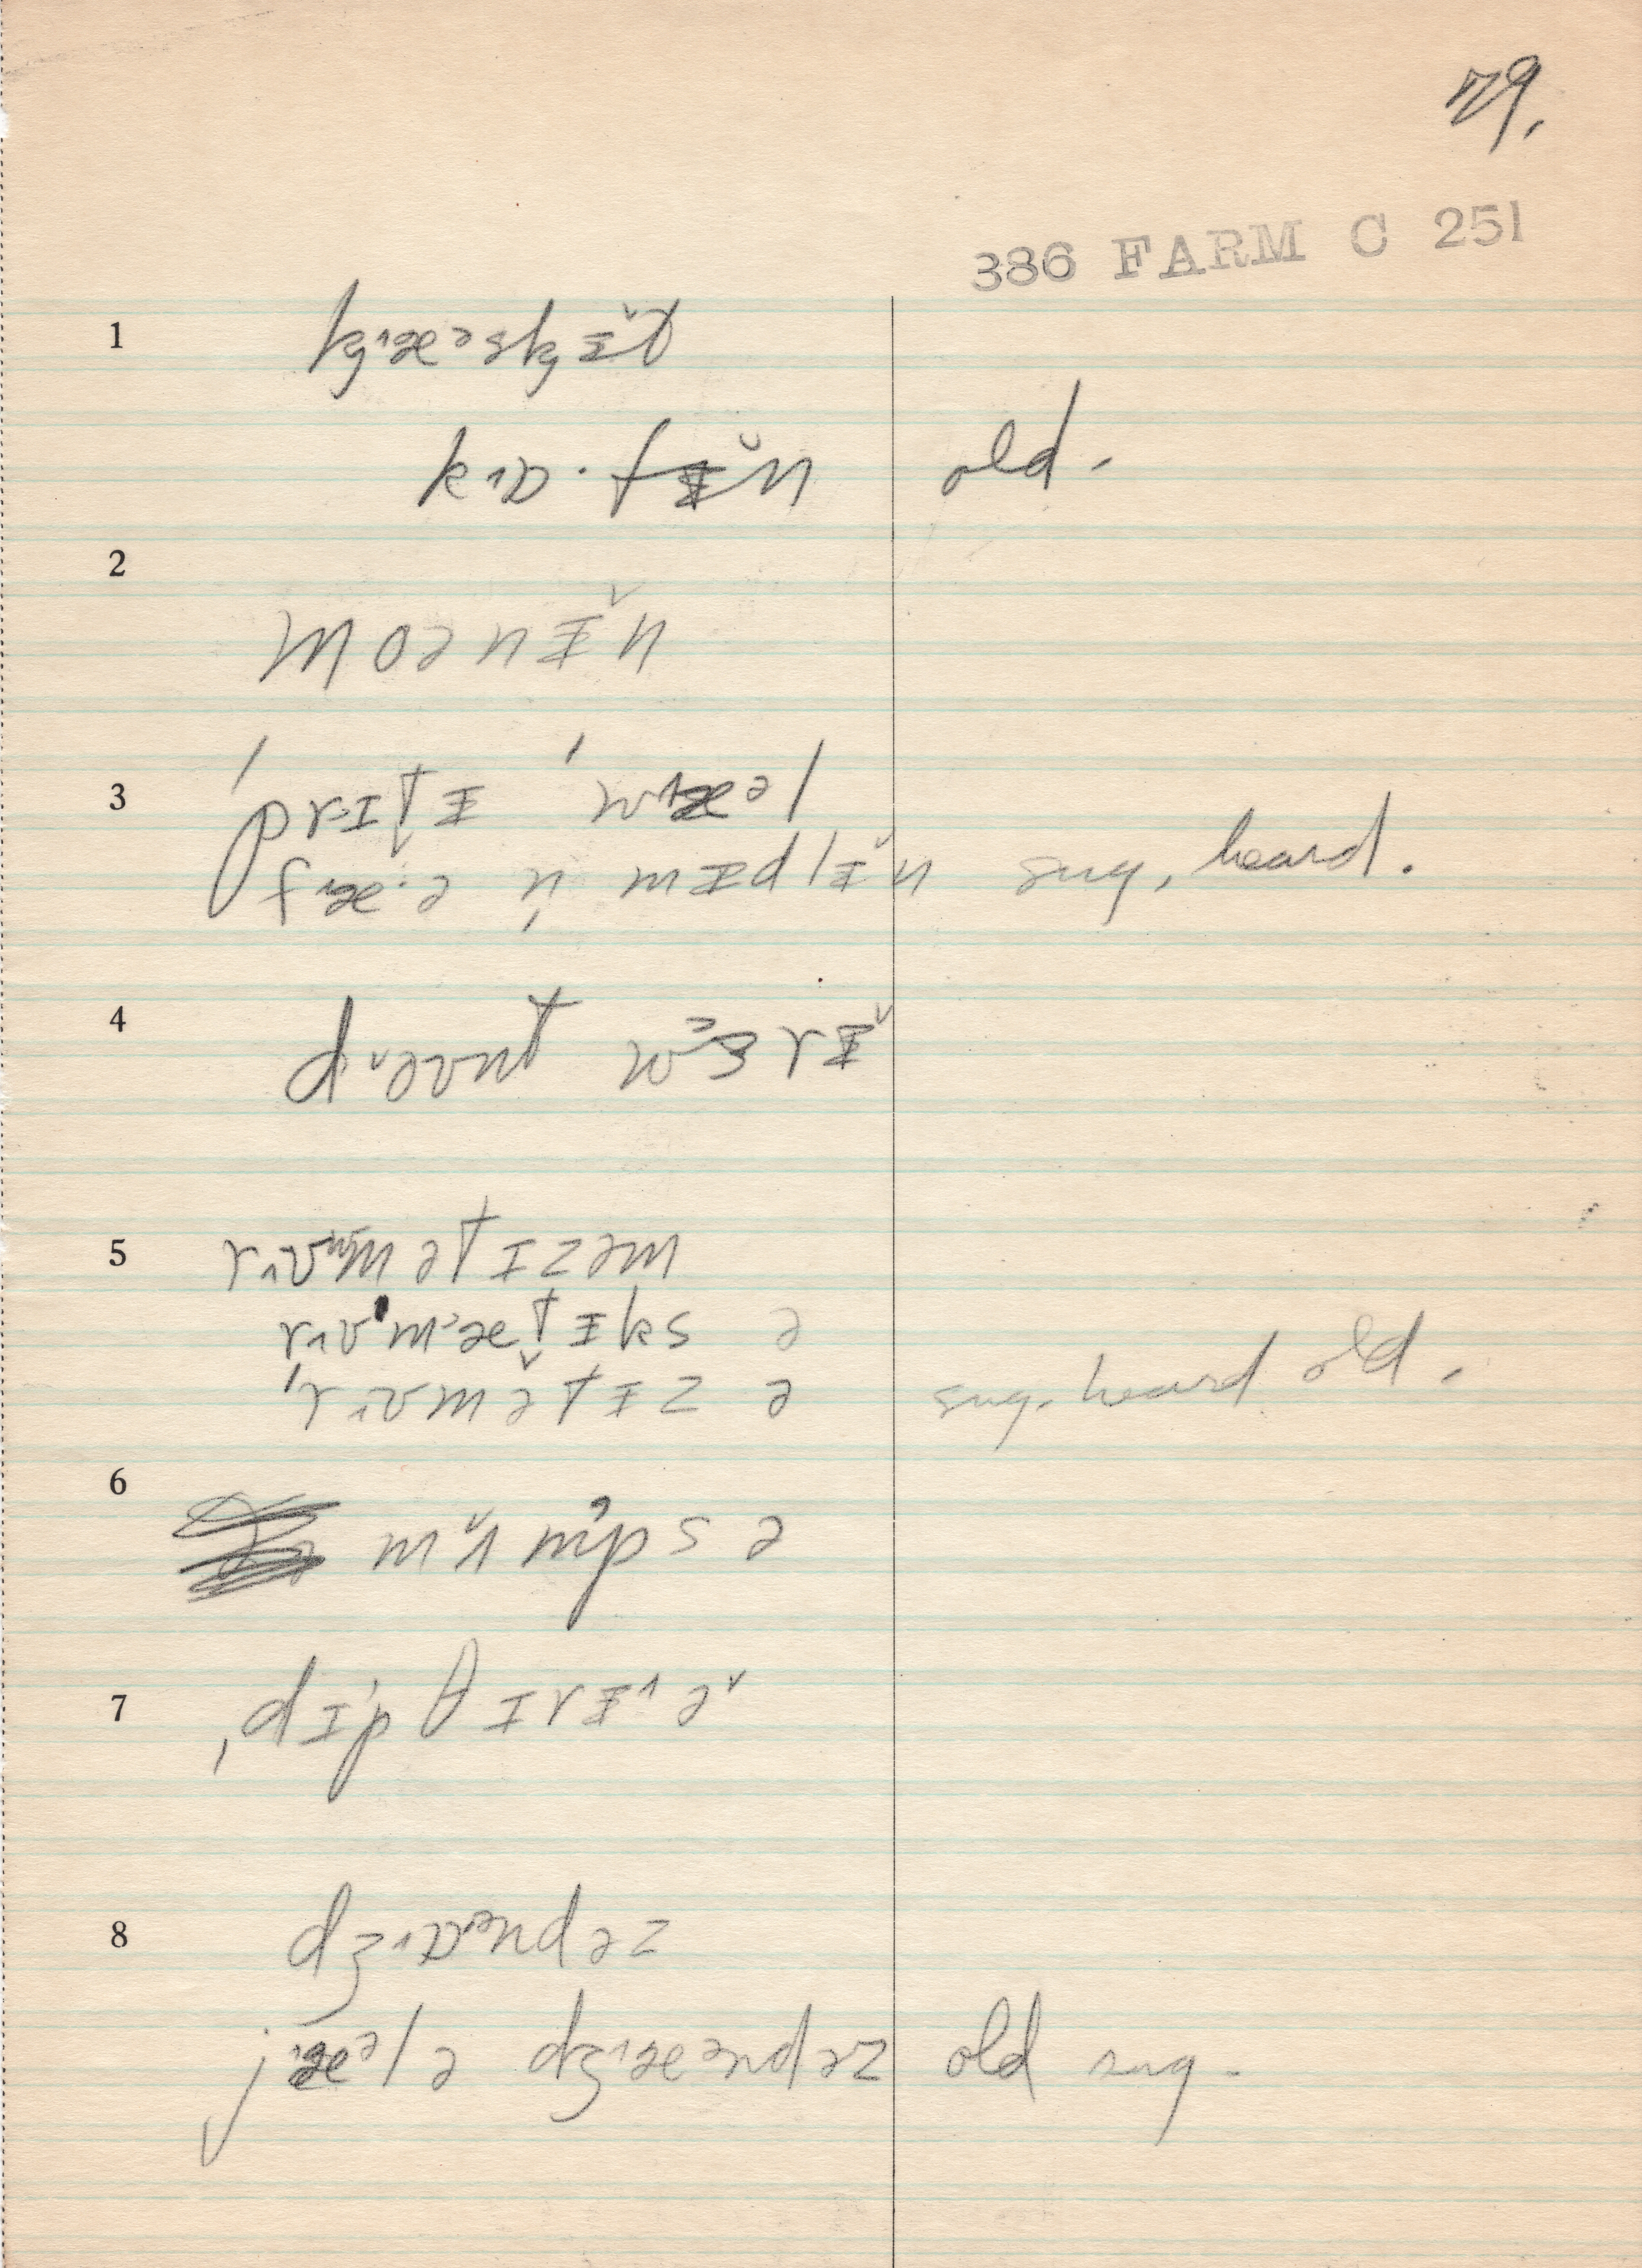 79.
386 FARM C 251
1 kʒ˄æəskʒɪ̵̌t
k˄ɒ·fɪ̵̌n old.
2
moənɪ̵̌n
3 ˈprɪt̬ɪ̵ ˈw˄æəl
f˄æ·ə n̩ mɪ̵dlɪ̵̌n sug, heard.
4 d˅əʊnt wɜrɪ̵̌
5 r˄ʊmətɪzəm
r˄ʊm˃æt̬ɪ̵ks ə
ˈr˄ʊmətɪ̵z ə sug. heard old.
6 m˅ʌmps ə
7 ˌdɪpθɪrɪ̵˄ə˅
8 dʒ˄ɒəndəz
j˄æələ dʒ˄æəndəz old sug.